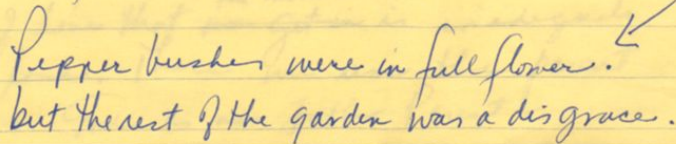 Pepper bushes were in full flower.
but the rest of the garden was a disgrace.